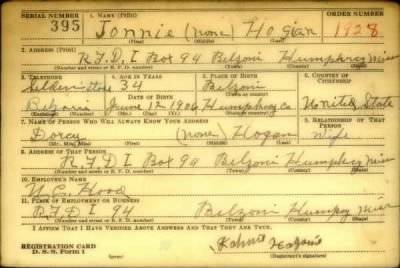 SERIAL NUMBER 1. NAME (Print) ORDER NUMBER
395 Jonnie (none) Hogan 1928
(First) (Middle) (Last)
2. ADDRESS (Print)
R.F.D. 1 Box 94 Belzoni Humphrey Miss
(Number and street or R. F. D. number) (Town) (County) (State)
3. TELEPHONE 4. AGE IN YEARS 5. PLACE OF BIRTH 6. COUNTRY OF CITIZENSHIP
store 34 Belzoni
Belzoni June 12 1906 Humphrey Co United State
7. NAME OF PERSON WHO WILL ALWAYS KNOW YOUR ADDRESS 8. RELATIONSHIP OF THAT PERSON
Dorcy (none) Hogan Wife
(Mr., Mrs., Miss) (First) (Middle) (Last)
9. ADDRESS OF THAT PERSON
R.F.D. 1 Box 94 Belzoni Humphrey Miss
(Number and street or R. F. D. number) (Town) (County) (State)
10. EMPLOYER'S NAME
Hood
11. PLACE OF EMPLOYMENT OR BUSINESS
R.F.D. 1 94 Belzoni Humphrey Miss
(Number and street or R. F. D. number) (Town) (County) (State)
I AFFIRM THAT I HAVE VERIFIED ABOVE ANSWERS AND THAT THEY ARE TRUE.
REGISTRATION CARD
D. S. S. Form 1 (Registrant's signature)